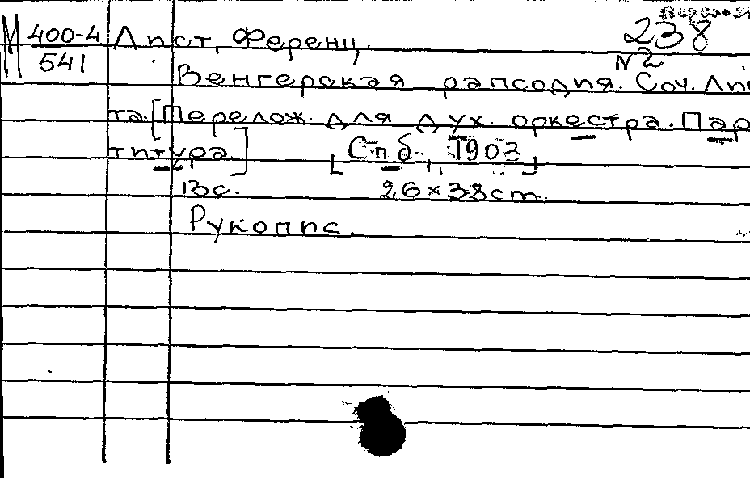 М 400-4 Лист, Ференц. 238
541 № 2
Венгерская рапсодия. Соч. Лис
та. [Перелож. для дух. оркестра. Пар
титура.] [Спб., 1903]
18 с. 26×38 cm.
Рукопис.